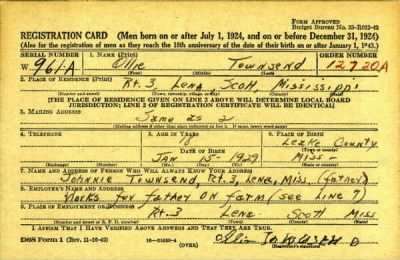 FORM APPROVED
Budget Bureau No. 33-R012-42
REGISTRATION CARD (Men born on or after July 1, 1924, and on or before December 31, 1924)
(Also for the registration of men as they reach the 18th anniversary of the date of their birth on or after January 1, 1943.)
SERIAL NUMBER
W 961-A
1. NAME (Print)
Ollie Townsend
(First) (Middle) (Last)
ORDER NUMBER
12720A
2. PLACE OF RESIDENCE (Print)
Rt. 3, Lena Scott, Mississippi
(Number and street) (Town, township, village, or city) (County) (State)
[THE PLACE OF RESIDENCE GIVEN ON LINE 2 ABOVE WILL DETERMINE LOCAL BOARD
JURISDICTION; LINE 2 OF REGISTRATION CERTIFICATE WILL BE IDENTICAL]
3. MAILING ADDRESS
Same as 2
[Mailing address if other than place indicated on line 2. If same, insert word same]
4. TELEPHONE
5. AGE IN YEARS
18
DATE OF BIRTH
Jan 15 1929
6. PLACE OF BIRTH
Leake County
(Town or county)
Miss
(State or country)
(Exchange) (Number) (Mo.) (Day) (Yr.)
7. NAME AND ADDRESS OF PERSON WHO WILL ALWAYS KNOW YOUR ADDRESS
Johnnie Townsend, Rt. 3, Lena, Miss. (father)
8. EMPLOYER'S NAME AND ADDRESS
Works for father on farm (see line 7)
9. PLACE OF EMPLOYMENT OR BUSINESS
Rt. 3 Lena Scott Miss
(Number and street or R. F. D. number) (Town) (County) (State)
I AFFIRM THAT I HAVE VERIFIED ABOVE ANSWERS AND THAT THEY ARE TRUE.
DSS Form 1 (Rev. 11-16-42) (OVER)